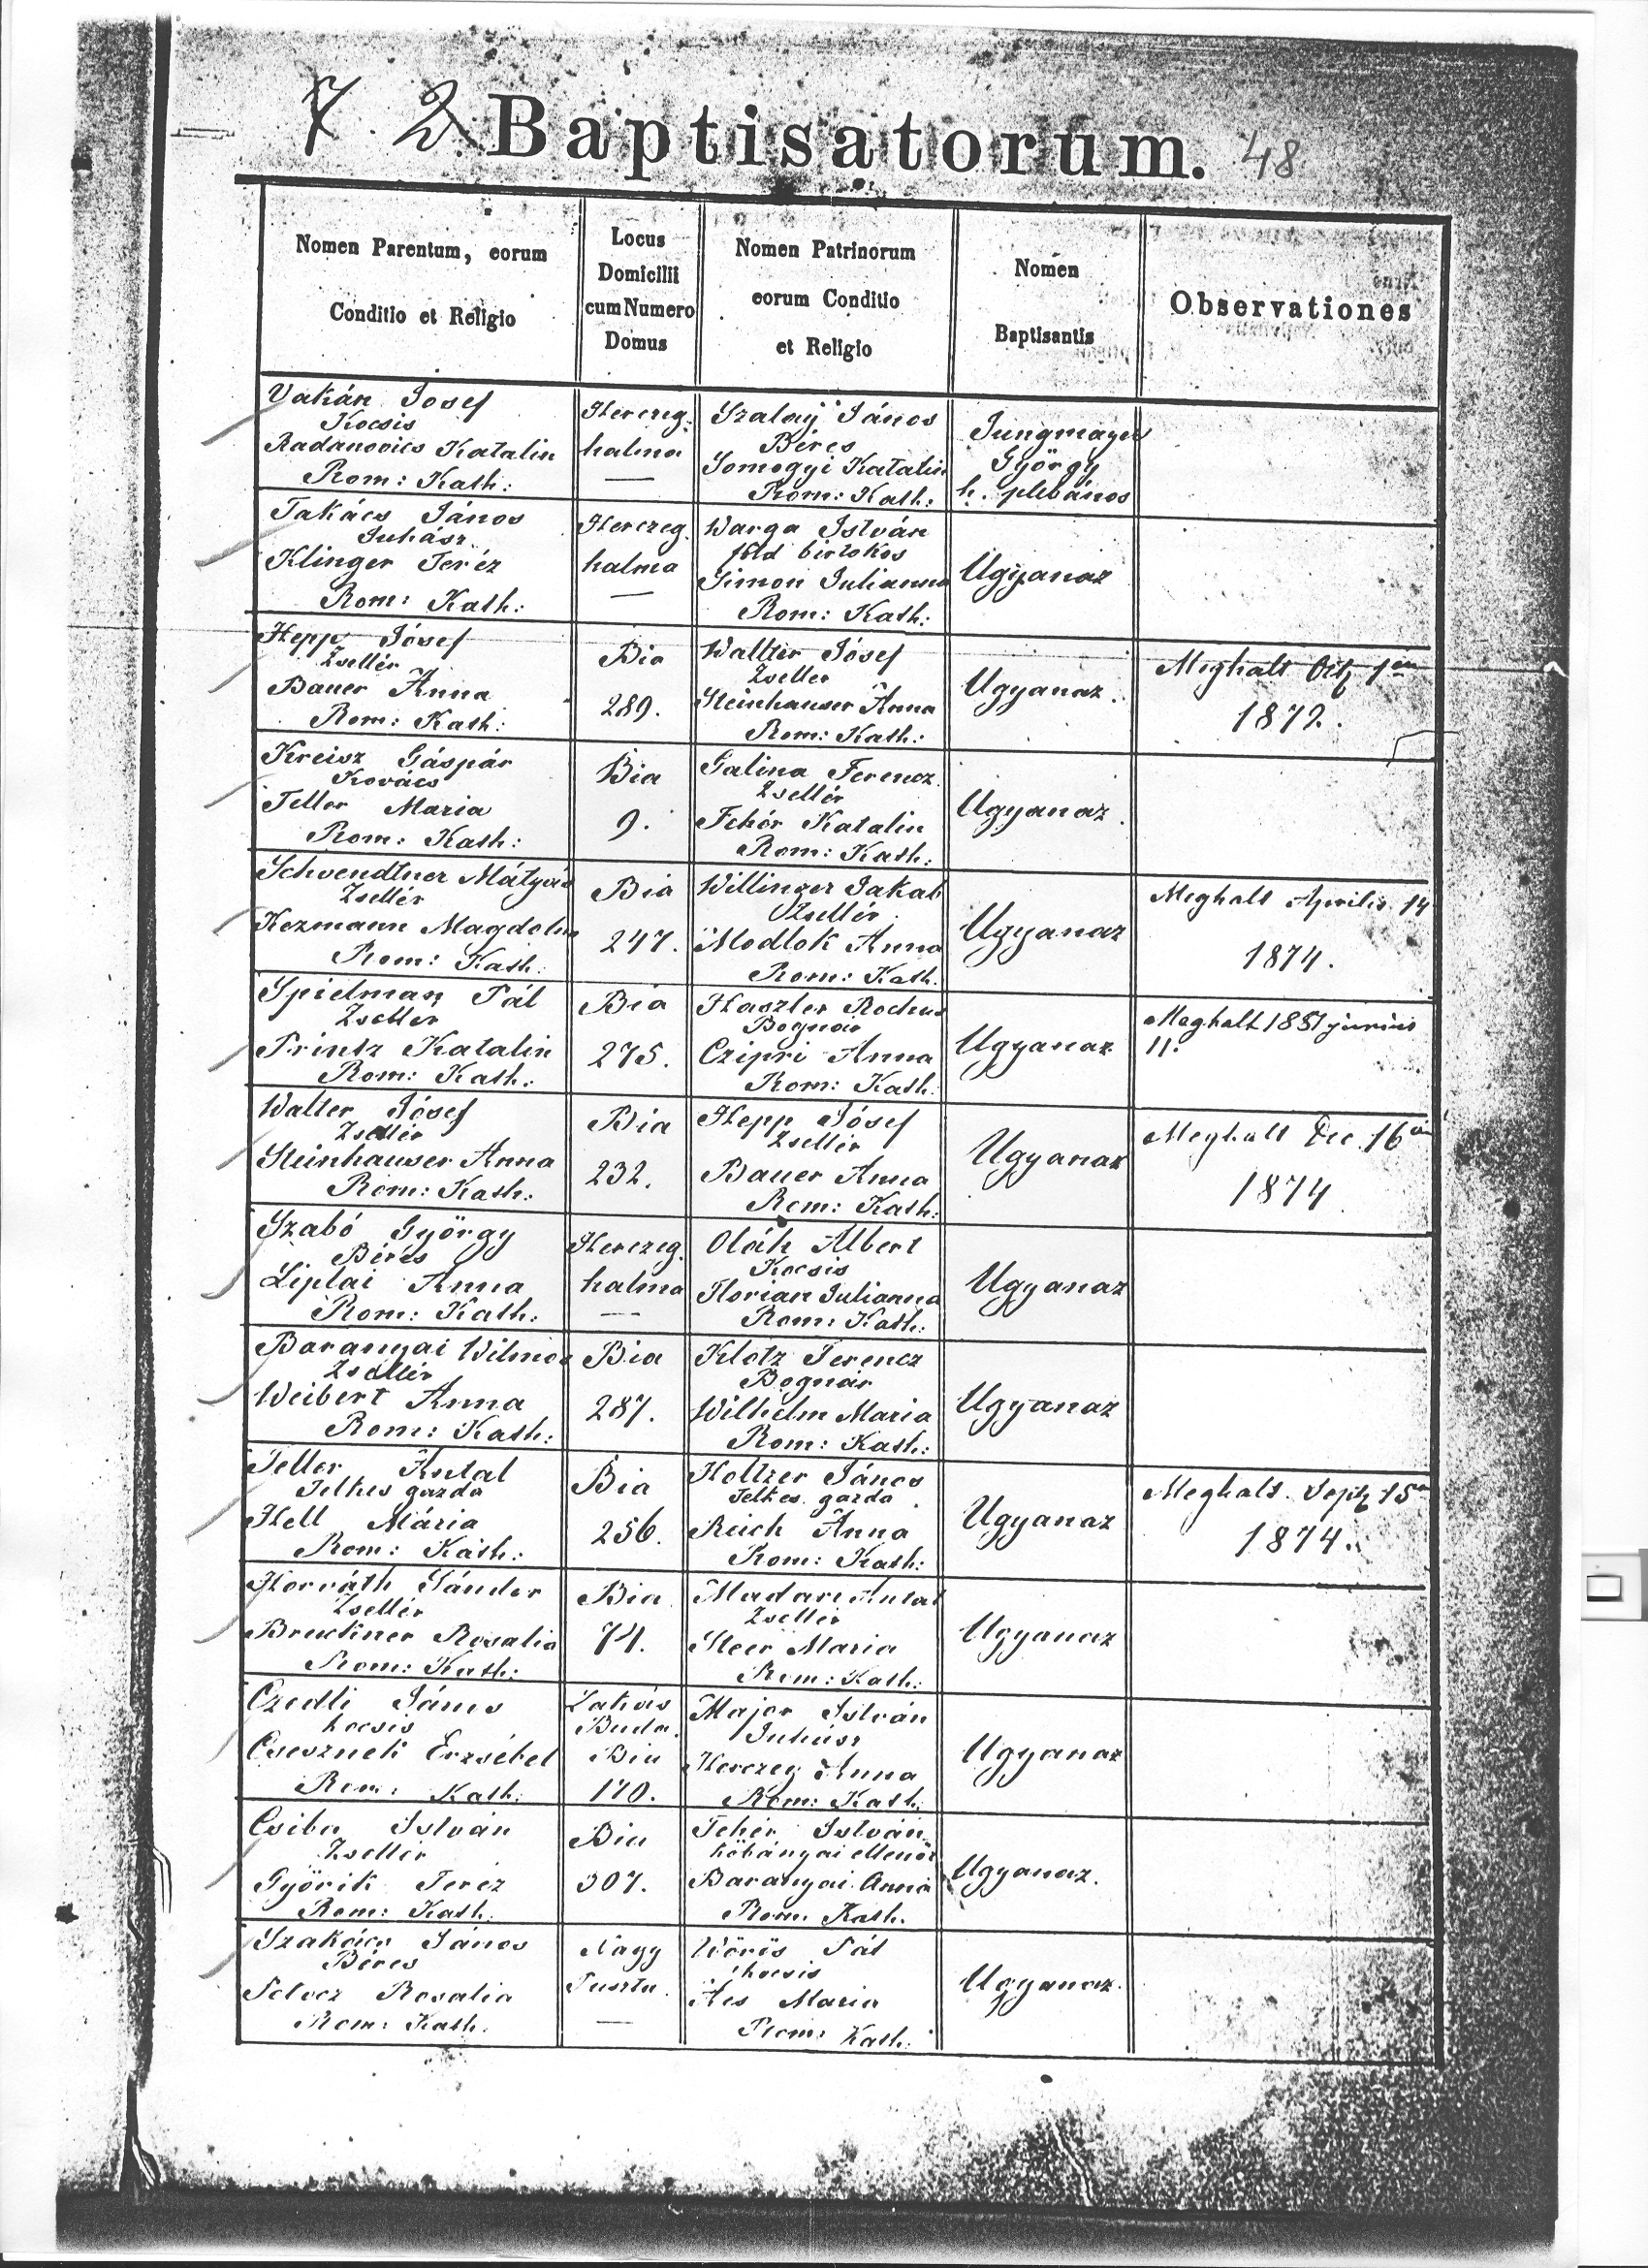 72 Baptisatorum. 48
Nomen Parentum, eorum
Conditio et Religio
Locus
Domicilii
cum Numero
Domus
Nomen Patrinorum
eorum Conditio
et Religio
Nomen
Baptisantis
Observationes
Vakán Josef
Kocsis
Radanovics Katalin
Rom: Kath:
Herczeg:
halma
—
Szalay János
Béres
Somogyi Katalin
Rom: Kath:
Jungmayer
György
h. plébános
Takács János
Juhász
Klinger Teréz
Rom: Kath:
Herczeg.
halma
—
Warga István
föld birtokos
Simon Julianna
Rom: Kath:
Ugyanaz
Hepp Jósef
Zsellér
Bauer Anna
Rom: Kath:
Bia
289.
Walter Jósef
Zseller
Steinhauser Anna
Rom: Kath:
Ugyanaz.
Meghalt 1én
1872.
Kreisz Gáspár
Kovács
Teller Maria
Rom: Kath:
Bia
9.
Galina Ferencz
Zsellér
Fehér Katalin
Rom: Kath:
Ugyanaz.
Schvendtner Mátyás
Zsellér
Kezmann Magdolna
Rom: Kath:
Bia
247.
Willinger Jakab
Zsellér
Modlok Anna
Rom: Kath.
Ugyanaz
Meghalt Aprilis 14
1874.
Spielman Pál
Zseller
Printz Katalin
Rom: Kath:
Bia
275.
Haszler Rochus
Bognár
Czipri Anna
Rom: Kath:
Ugyanaz
Meghalt 1881 junius
11.
Walter Jósef
Zsellér
Steinhauser Anna
Rom: Kath:
Bia
232.
Hepp Jósef
Zsellér
Bauer Anna
Rom: Kath:
Ugyanaz
Meghalt Dec. 16án
1874
Szabó György
Béres
Liplai Anna
Rom: Kath:
Herczeg.
halma
—
Oláh Albert
Kocsis
Florian Julianna
Rom: Kath:
Ugyanaz
Baranyai Wilmos
Zsellér
Weibert Anna
Rom: Kath:
Bia
287.
Klotz Ferencz
Bognár
Wilhelm Maria
Rom: Kath:
Ugyanaz
Teller Antal
Telkes gazda
Hell Mária
Rom: Kath:
Bia
256.
Holtzer János
Telkes gazda
Reich Anna
Rom: Kath:
Ugyanaz
Meghalt. 15én
1874.
Horváth Sándor
Zsellér
Bruckner Rosalia
Rom: Kath:
Bia
74.
Madari Antal
Zsellér
Steer Maria
Rom: Kath:
Ugyanaz
Czedli János
kocsis
Csesznek Erzsébet
Rom: Kath:
Lakás
Buda.
Bia
170.
Major István
Juhász
Herczeg Anna
Rom: Kath:
Ugyanaz
Csiba István
Zsellér
Györik Teréz
Rom: Kath:
Bia
307.
Fehér István
kőbányai ellenőr
Baranyai Anna
Rom. Kath.
Ugyanaz.
Szakács János
Béres
Rosalia
Rom: Kath:
Nagy
Puszta.
—
Vörös Pál
kocsis
Ács Maria
Rom: Kath:
Ugyanaz.